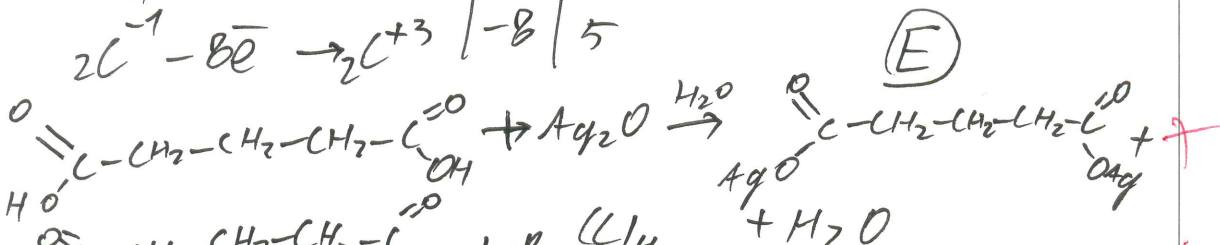 2C⁻¹ – 8e̅ → 2C⁺³ | –8 | 5
E
O=C(HO)–CH₂–CH₂–CH₂–C(=O)OH + Ag₂O –H₂O→ O=C(AgO)–CH₂–CH₂–CH₂–C(=O)OAg +
+ H₂O
CH₂–CH CCl₄